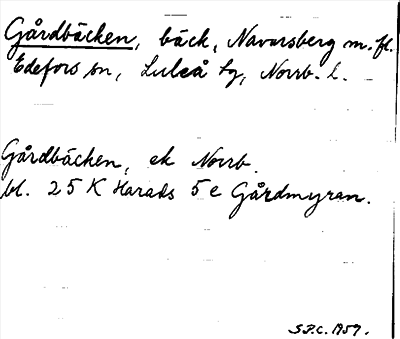 Gårdbäcken, bäck, Navarsberg m.fl.
Edefors sn, Luleå tg, Norrb. l.
Gårdbäcken, ek Norrb.
bl. 25 K Harads 5 e Gårdmyran.
S.P.C. 1959.